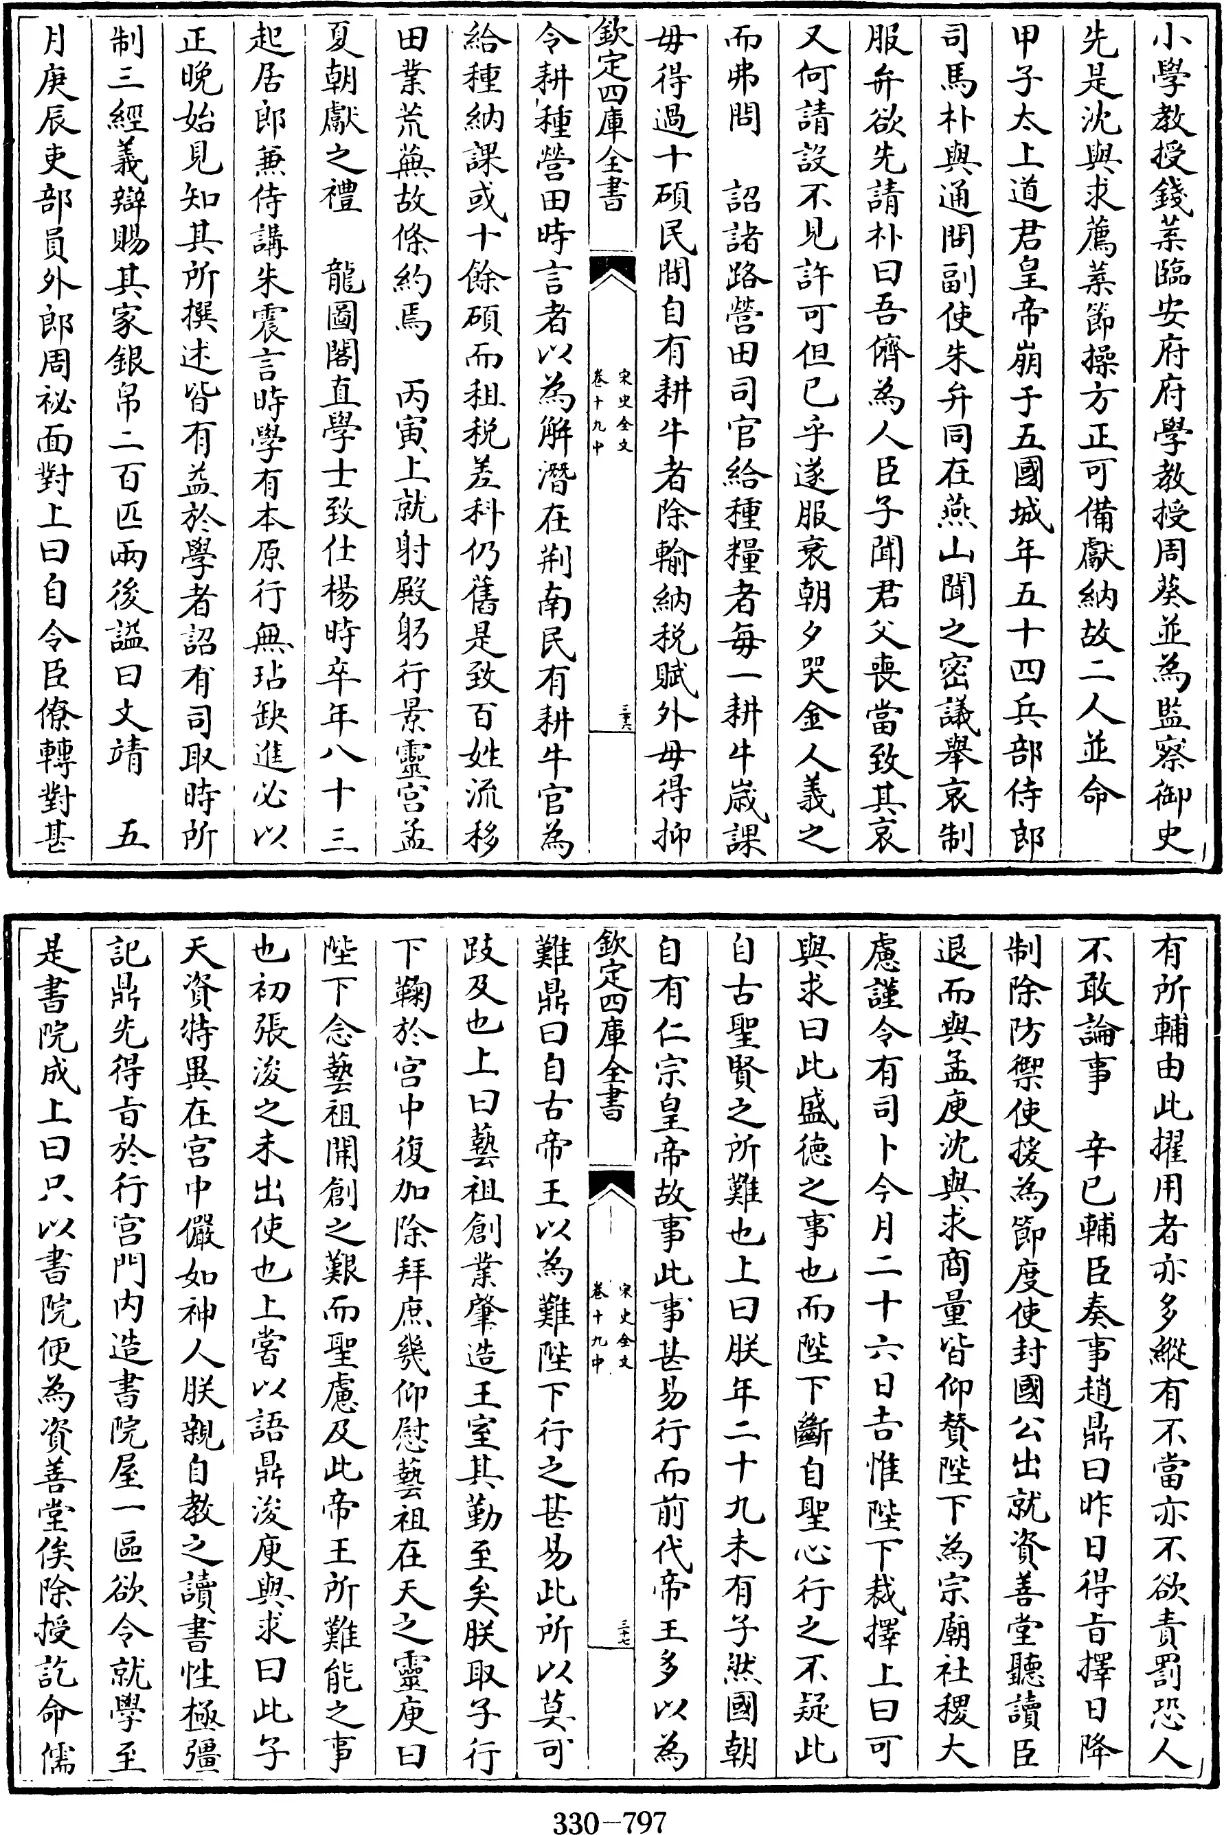 小學教授錢葉臨安府府學教授周葵並為監察御史
先是沈與求薦葉節操方正可備獻納故二人並命
甲子太上道君皇帝崩于五國城年五十四兵部侍郎
司馬朴與通問副使朱弁同在燕山聞之密議舉哀制
服弁欲先請朴曰吾儕為人臣子聞君父喪當致其哀
又何請設不見許可但已乎遂服衰朝夕哭金人義之
而弗問　詔諸路營田司官給種糧者每一耕牛嵗課
毋得過十碩民間自有耕牛者除輸納税賦外毋得抑
欽定四庫全書
宋史全文
卷十九中
三十六
令耕種營田時言者以為解潛在荆南民有耕牛官為
給種納課或十餘碩而租税差科仍舊是致百姓流移
田業荒蕪故條約焉　丙寅上就射殿躬行景靈宫孟
夏朝獻之禮　龍圖閣直學士致仕楊時卒年八十三
起居郎兼侍講朱震言時學有本原行無玷缺進必以
正晩始見知其所撰述皆有益於學者詔有司取時所
制三經義辯賜其家銀帛二百匹兩後謚曰文靖　五
月庚辰吏部員外郎周祕面對上曰自令臣僚轉對甚
有所輔由此擢用者亦多縱有不當亦不欲責罰恐人
不敢論事　辛巳輔臣奏事趙鼎曰昨日得旨擇日降
制除防禦使援為節度使封國公出就資善堂聽讀臣
退而與孟庾沈與求商量皆仰賛陛下為宗廟社稷大
慮謹令有司卜今月二十六日吉惟陛下裁擇上曰可
與求曰此盛德之事也而陛下斷自聖心行之不疑此
自古聖賢之所難也上曰朕年二十九未有子然國朝
自有仁宗皇帝故事此事甚易行而前代帝王多以為
欽定四庫全書
宋史全文
卷十九中
三十七
難鼎曰自古帝王以為難陛下行之甚易此所以莫可
跂及也上曰藝祖創業肇造王室其勤至矣朕取子行
下鞠於宫中復加除拜庶幾仰慰藝祖在天之靈庾曰
陛下念藝祖開創之艱而聖慮及此帝王所難能之事
也初張浚之未出使也上嘗以語鼎浚庾與求曰此子
天資特異在宫中儼如神人朕親自教之讀書性極彊
記鼎先得旨於行宫門内造書院屋一區欲令就學至
是書院成上曰只以書院便為資善堂俟除授訖命儒
330-797